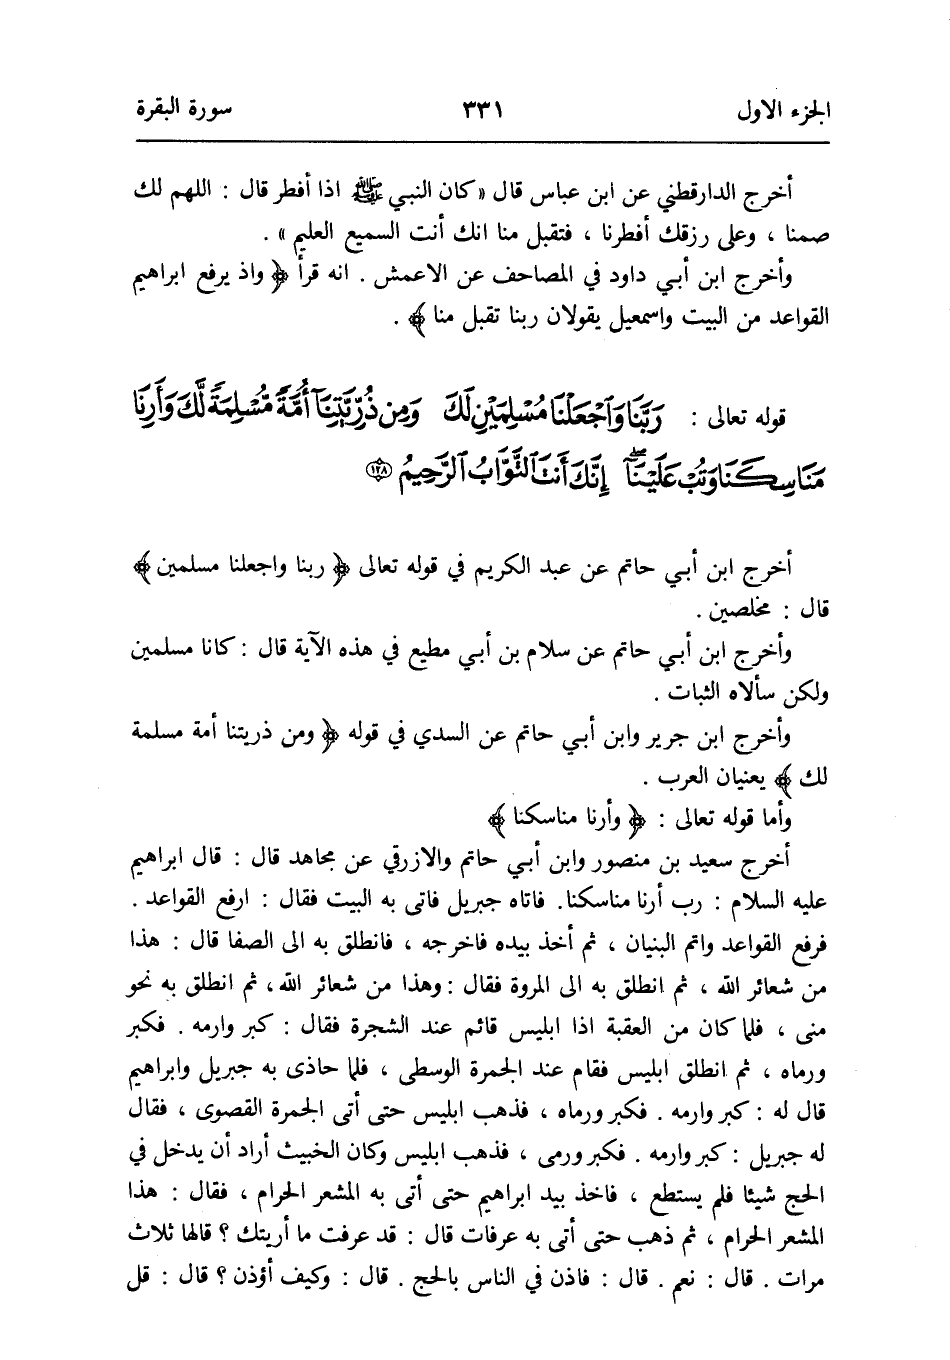 الجزء الاول ٣٣١ سورة البقرة
أخرج الدارقطني عن ابن عباس قال « كان النبي ﷺ اذا أفطر قال : اللهم لك
صمنا ، وعلى رزقك أفطرنا ، فتقبل منا انك أنت السميع العليم » .
وأخرج ابن أبي داود في المصاحف عن الاعمش . انه قرأ ﴿ واذ يرفع ابراهيم
القواعد من البيت واسمعيل يقولان ربنا تقبل منا ﴾ .
قوله تعالى : رَبَّنَا وَٱجْعَلْنَا مُسْلِمَيْنِ لَكَ وَمِن ذُرِّيَّتِنَآ أُمَّةً مُّسْلِمَةً لَّكَ وَأَرِنَا
مَنَاسِكَنَا وَتُبْ عَلَيْنَآ ۖ إِنَّكَ أَنتَ ٱلتَّوَّابُ ٱلرَّحِيمُ ﴿١٢٨﴾
أخرج ابن أبي حاتم عن عبد الكريم في قوله تعالى ﴿ ربنا واجعلنا مسلمين ﴾
قال : مخلصين .
وأخرج ابن أبي حاتم عن سلام بن أبي مطيع في هذه الآية قال : كانا مسلمين
ولكن سألاه الثبات .
وأخرج ابن جرير وابن أبي حاتم عن السدي في قوله ﴿ ومن ذريتنا أمة مسلمة
لك ﴾ يعنيان العرب .
وأما قوله تعالى : ﴿ وأرنا مناسكنا ﴾
أخرج سعيد بن منصور وابن أبي حاتم والازرقي عن مجاهد قال : قال ابراهيم
عليه السلام : رب أرنا مناسكنا. فاتاه جبريل فاتى به البيت فقال : ارفع القواعد .
فرفع القواعد واتم البنيان ، ثم أخذ بيده فاخرجه ، فانطلق به الى الصفا قال : هذا
من شعائر الله ، ثم انطلق به الى المروة فقال : وهذا من شعائر الله، ثم انطلق به نحو
منى ، فلما كان من العقبة اذا ابليس قائم عند الشجرة فقال : كبر وارمه . فكبر
ورماه ، ثم انطلق ابليس فقام عند الجمرة الوسطى ، فلما حاذى به جبريل وابراهيم
قال له : كبر وارمه . فكبر ورماه ، فذهب ابليس حتى أتى الجمرة القصوى ، فقال
له جبريل : كبر وارمه . فكبر ورمى ، فذهب ابليس وكان الخبيث أراد أن يدخل في
الحج شيئا فلم يستطع ، فاخذ بيد ابراهيم حتى أتى به المشعر الحرام ، فقال : هذا
المشعر الحرام ، ثم ذهب حتى أتى به عرفات قال : قد عرفت ما أريتك ؟ قالها ثلاث
مرات . قال : نعم . قال : فاذن في الناس بالحج . قال : وكيف أؤذن ؟ قال : قل